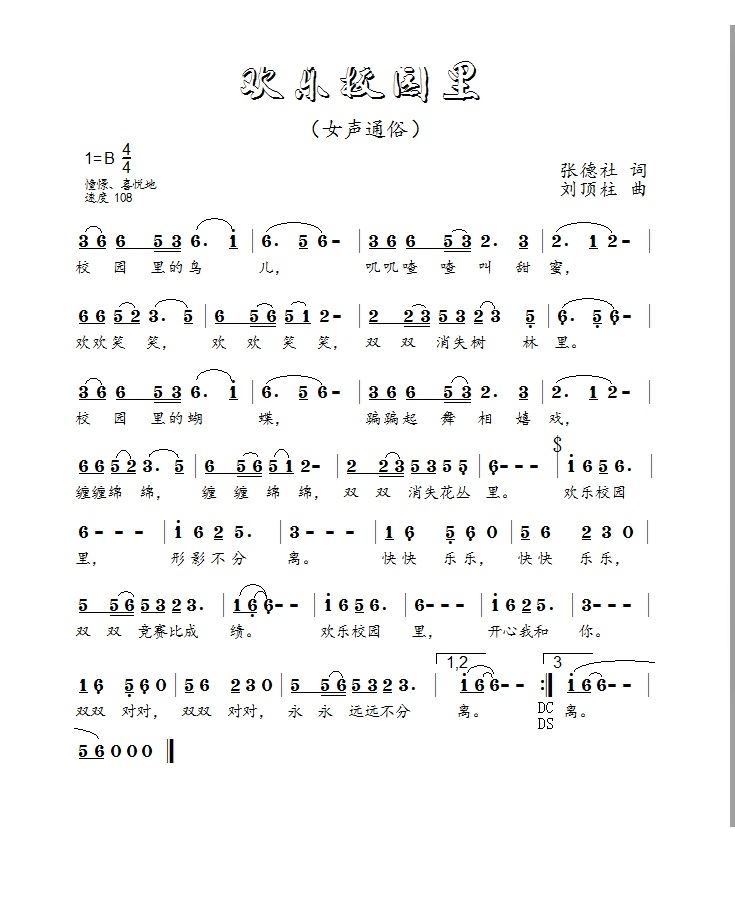 欢乐校园里
（女声通俗）
1=B 4/4
憧憬、喜悦地
速度 108
张德社 词
刘顶柱 曲
3 6 6 5 3 6. i | 6. 5 6 - | 3 6 6 5 3 2. 3 | 2. 1 2 - |
校 园 里的鸟 儿， 叽叽喳 喳叫 甜 蜜，
6 6 5 2 3. 5 | 6 5 6 5 1 2 - | 2 2 3 5 3 2 3 5 | 6. 5 6 - |
欢欢笑 笑， 欢 欢 笑 笑， 双 双 消失树 林 里。
3 6 6 5 3 6. i | 6. 5 6 - | 3 6 6 5 3 2. 3 | 2. 1 2 - |
校 园 里的蝴 蝶， 蹁蹁起 舞 相 嬉 戏，
6 6 5 2 3. 5 | 6 5 6 5 1 2 - | 2 2 3 5 3 5 5 | 6 - - - | $ i 6 5 6. |
缠缠绵 绵， 缠 缠 绵 绵， 双 双 消失花丛 里。 欢乐校园
6 - - - | i 6 2 5. | 3 - - - | 1 6 5 6 0 | 5 6 2 3 0 |
里， 形影不分 离。 快快 乐乐， 快快 乐乐，
5 5 6 5 3 2 3. | 1 6 6 - - | i 6 5 6. | 6 - - - | i 6 2 5. | 3 - - - |
双 双 竞赛比成 绩。 欢乐校园 里， 开心我和 你。
1,2 3
1 6 5 6 0 | 5 6 2 3 0 | 5 5 6 5 3 2 3. | i 6 6 - - :| i 6 6 - - |
双双 对对， 双双 对对， 永 永 远远不分 离。 DC 离。
DS
5 6 0 0 0 |